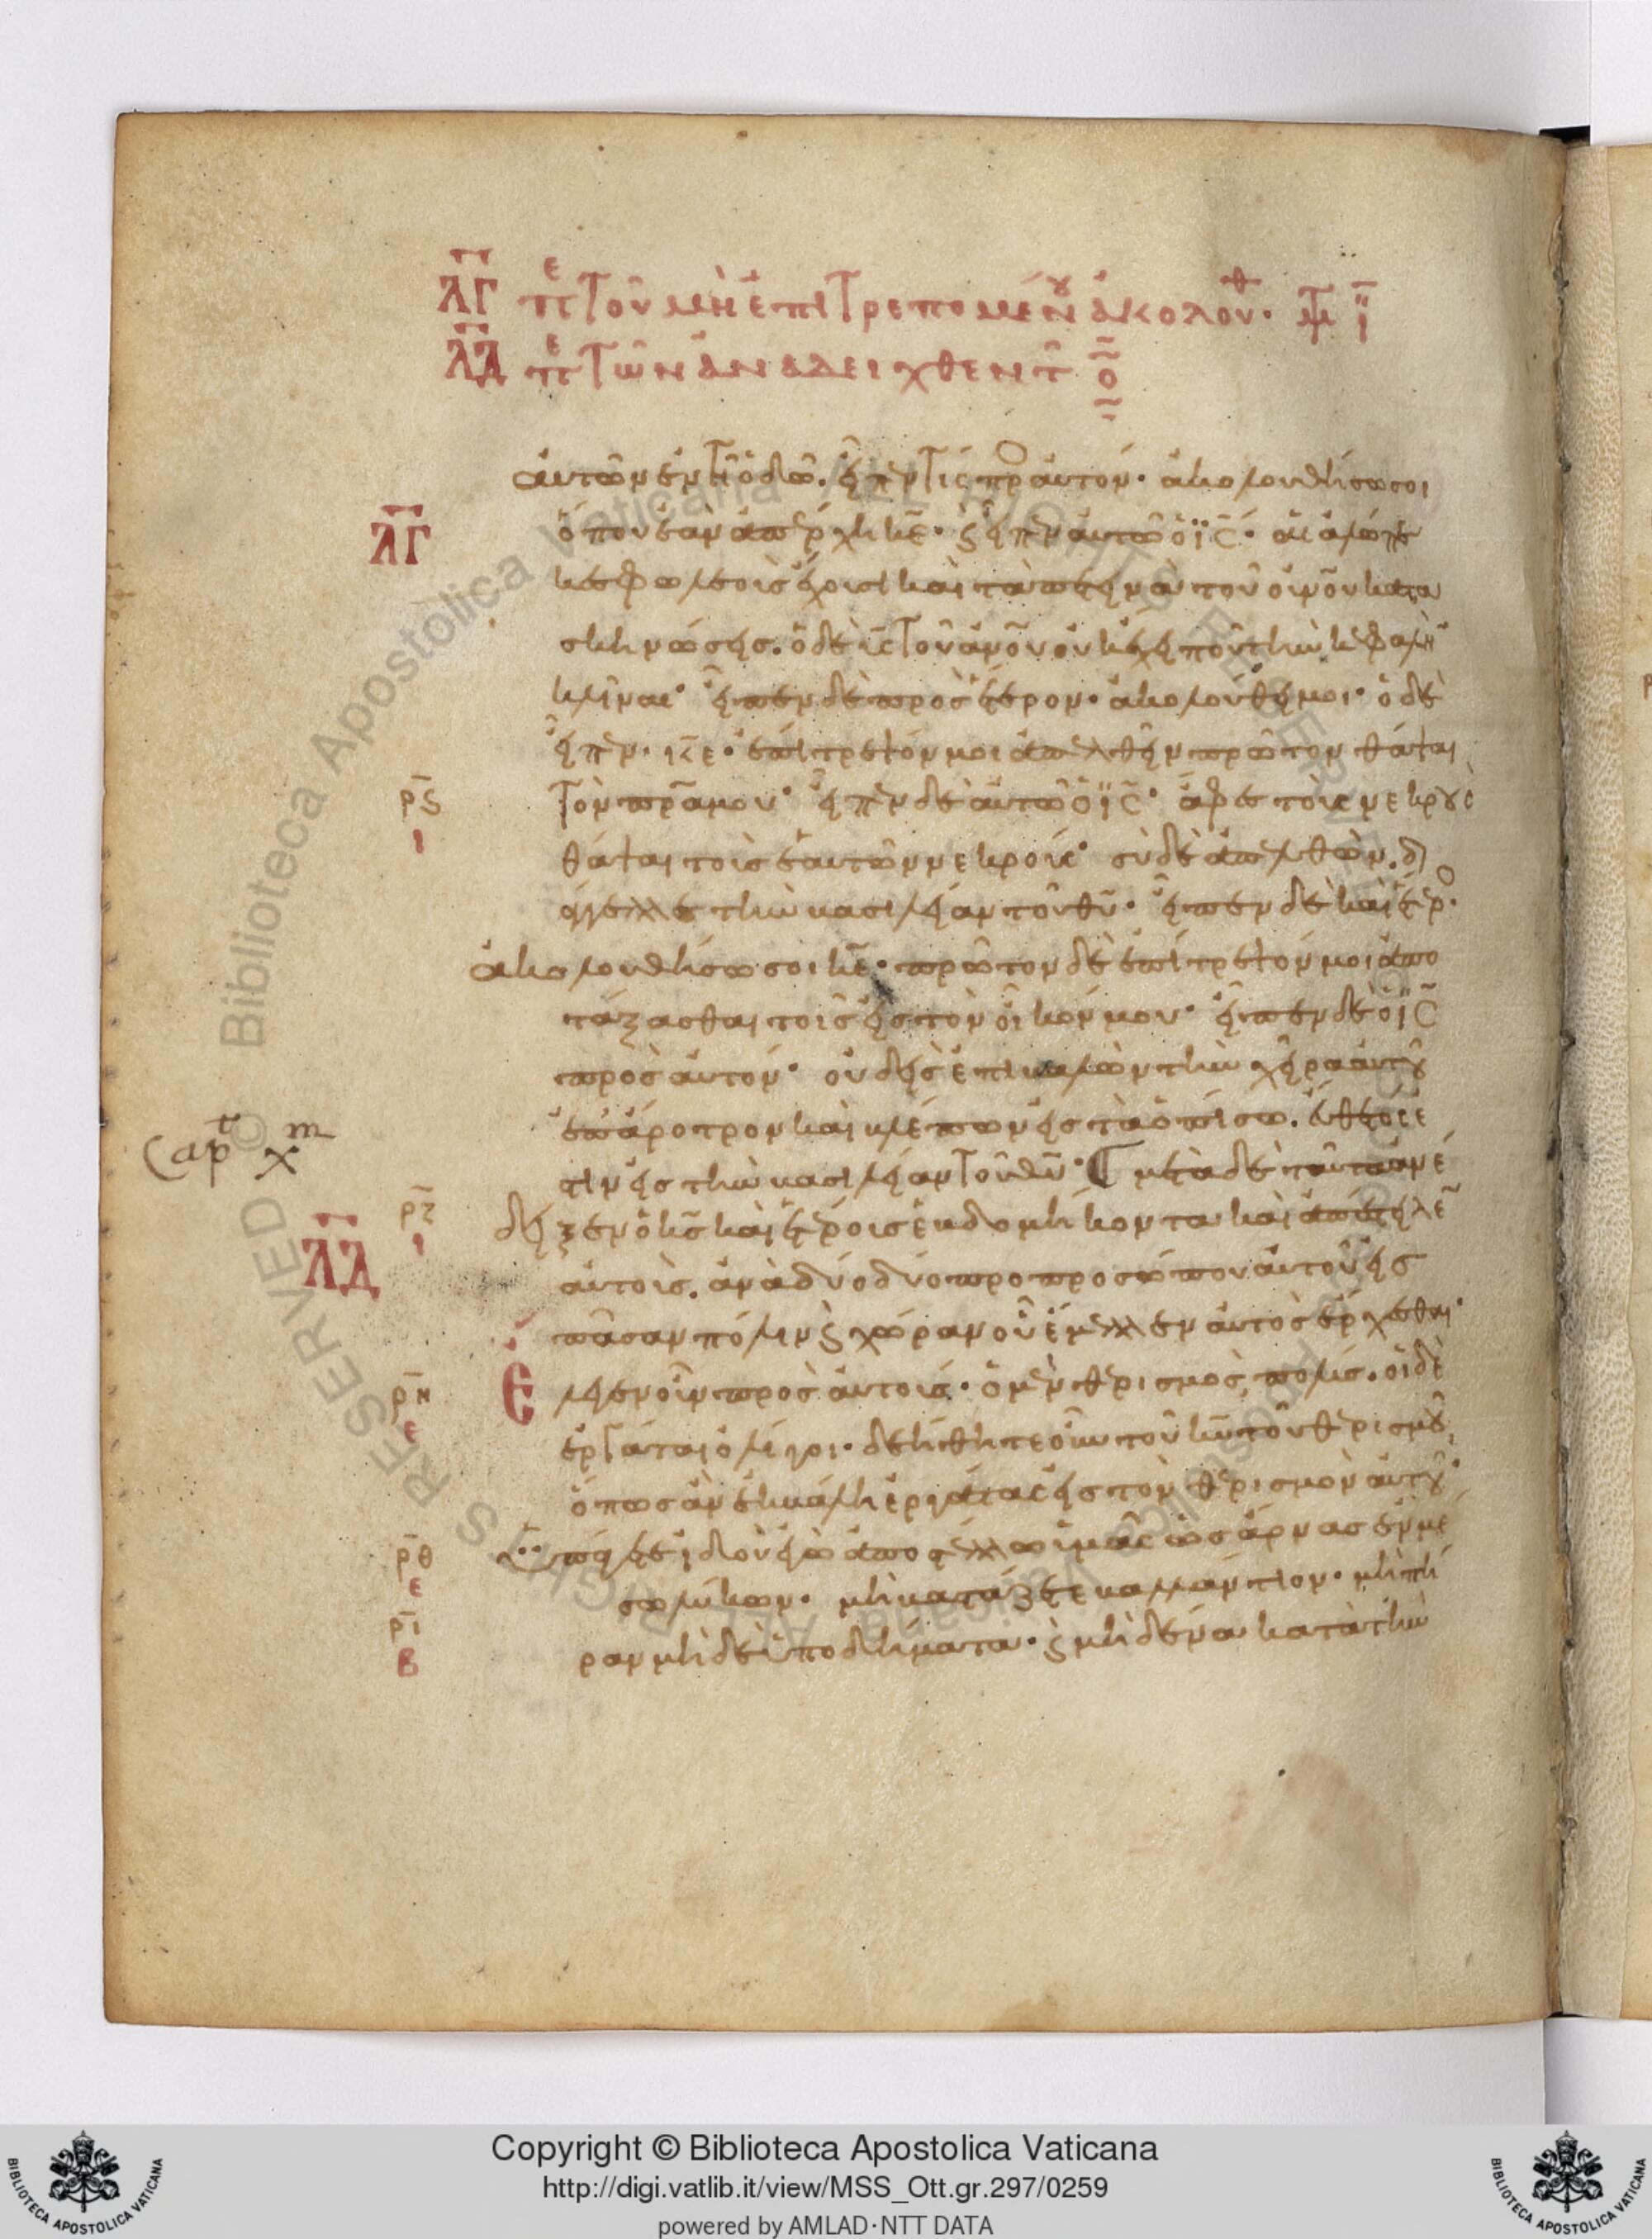 ΛΓ πε τοῦ μὴ ἐπιτρεπομένου ἀκολου θ· Μ ϊ
ΛΔ πε τῶν ἀναδειχθεντ ο
αὐτῶν ἐν τῆ ὁδῶ. εἶπέν τίς πρὸ αὐτόν· ἀκολουθήσω σοι
ΛΓ
ὅπου ἐὰν ἀπέρχη κε· ϛ εἶπεν αὐτῶ ὁ ις· αἱ ἀλώπε
κες φωλεοῖς ἔχουσι καὶ τὰ πετεινὰ τοῦ οὐνοῦ κατα
σκηνώσεις. ὁ δὲ υς τοῦ ἀνου οὐκ ἔχει ποῦ τὴν κεφαλὴν
κλίναι· εἶπεν δὲ πρὸς ἕτερον· ἀκολούθει μοι· ὁ δὲ
εἶπεν. κε· ἐπίτρεψόν μοι ἀπελθεῖν πρῶτον θάψαι
ρϛ
ι
τὸν πρα μου· εἶπεν δὲ αὐτῶ ὁ ις· ἄφες τοὺς νεκροὺς
θάψαι τοὺς ἑαυτῶν νεκρούς· σὺ δὲ ἀπελθὼν. δι
άγγελλε τὴν βασιλείαν τοῦ θυ· εἶπεν δὲ καὶ ἕτερο·
ἀκολουθήσω σοι κε· πρῶτον δὲ ἐπίτρεψόν μοι ἀπο
τάξασθαι τοῖς εἰς τὸν οἶκόν μου· εἶπεν δὲ ὁ ις
πρὸς αὐτόν· οὐδεὶς ἐπιβαλὼν τὴν χεῖρα αὐτοῦ
ἐπ ἄροτρον καὶ βλέπων εἰς τὰ ὀπίσω. εὔθετός ἐ
Capt Xm
στιν εἰς τὴν βασιλείαν τοῦ θυ· μετὰ δὲ ταῦτα ἀνέ
ρζ
ι
ΛΔ
δειξεν ὁ κς καὶ ἑτέρους ἑβδομήκοντα καὶ ἀπέστειλε
αὐτοὺς. ἀνὰ δύο δύο πρὸ προσώπου αὐτοῦ εἰς
πᾶσαν πόλιν ϛ χώραν οὗ ἔμελλεν αὐτὸς ἔρχεσθαι·
ρη
ε
Ελεγεν οὖν πρὸς αὐτούς· ὁ μὲν θερισμὸς, πολύς. οἱ δὲ
ἐργάται ὀλίγοι· δεήθητε οὖν τοῦ κυ τοῦ θερισμοῦ,
ὅπως ἂν ἐκβάλη ἐργάτας εἰς τὸν θερισμὸν αὐτοῦ·
ρθ
ε
ὑπάγετε ἰδοὺ ἐγὼ ἀποστέλλω ὑμᾶς ὡς ἄρνας ἐν μέ
σω λύκων· μὴ βαστάζετε βαλλάντιον· μὴ πή
ρι
β
ραν μὴ δὲ ὑποδήματα· ϛ μηδένα κατὰ τὴν
Copyright © Biblioteca Apostolica Vaticana
http://digi.vatlib.it/view/MSS_Ott.gr.297/0259
powered by AMLAD·NTT DATA
BIBLIOTECA APOSTOLICA VATICANA
BIBLIOTECA APOSTOLICA VATICANA